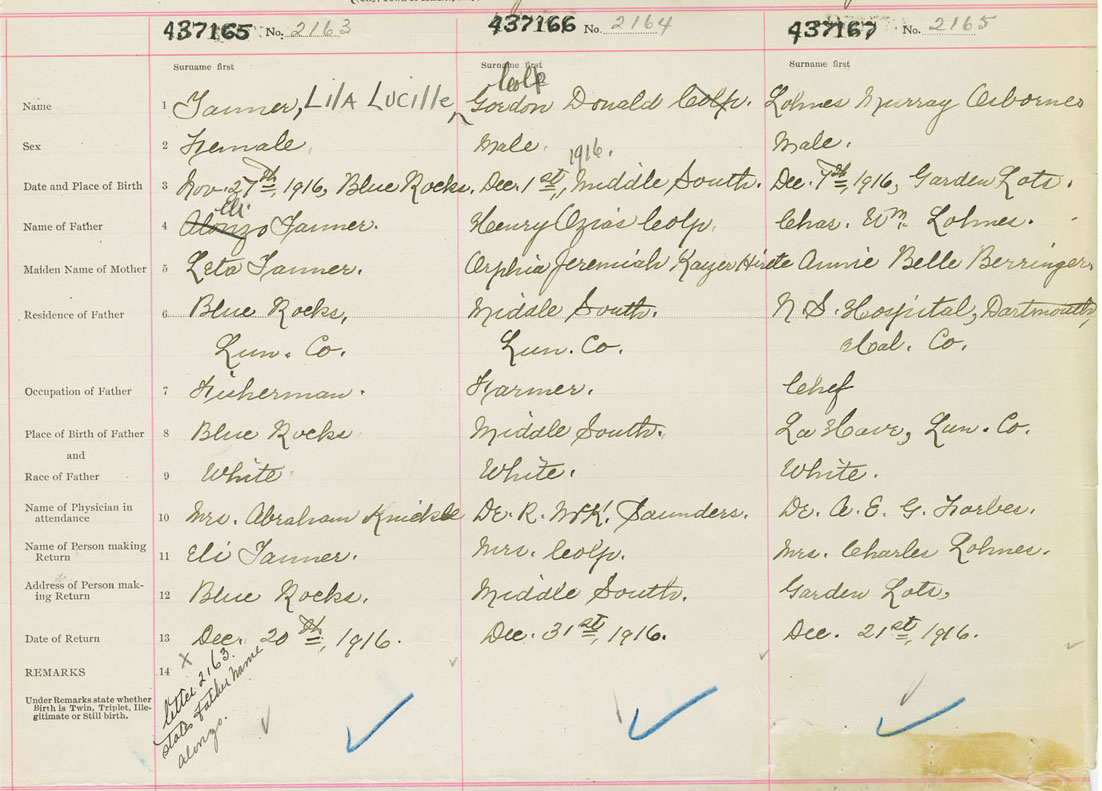 437165 No. 2163 437166 No. 2164 437167 No. 2165
Surname first Surname first Surname first
Colp
Name 1 Tanner, LILA LUCILLE Gordon Donald Colp. Lohnes Murray Osborne
Sex 2 Female. Male. Male.
1916.
Date and Place of Birth 3 Nov. 27th, 1916, Blue Rocks. Dec. 1st, Middle South. Dec. 7th, 1916, Garden Lots.
Eli.
Name of Father 4 Alonzo Tanner. Henry Ozias Colp. Chas. Wm. Lohnes.
Maiden Name of Mother 5 Leta Tanner. Orphia Jeremiah Kayzer Annie Belle Berringer.
Residence of Father 6 Blue Rocks, Middle South. N.S. Hospital, Dartmouth,
Lun. Co. Lun. Co. Hal. Co.
Occupation of Father 7 Fisherman. Farmer. Chef
Place of Birth of Father 8 Blue Rocks Middle South. La Have, Lun. Co.
and
Race of Father 9 White White. White.
Name of Physician in
attendance 10 Mrs. Abraham Knickle Dr. R. McK. Saunders. Dr. A. E. G. Forbes.
Name of Person making
Return 11 Eli Tanner. Mrs. Colp. Mrs. Charles Lohnes.
Address of Person mak-
ing Return 12 Blue Rocks. Middle South. Garden Lots,
Date of Return 13 Dec. 20th, 1916. Dec. 31st, 1916. Dec. 21st, 1916.
REMARKS 14 X
Under Remarks state whether
Birth is Twin, Triplet, Ille-
gitimate or Still birth.
letter 2163.
states father name
Alonzo.